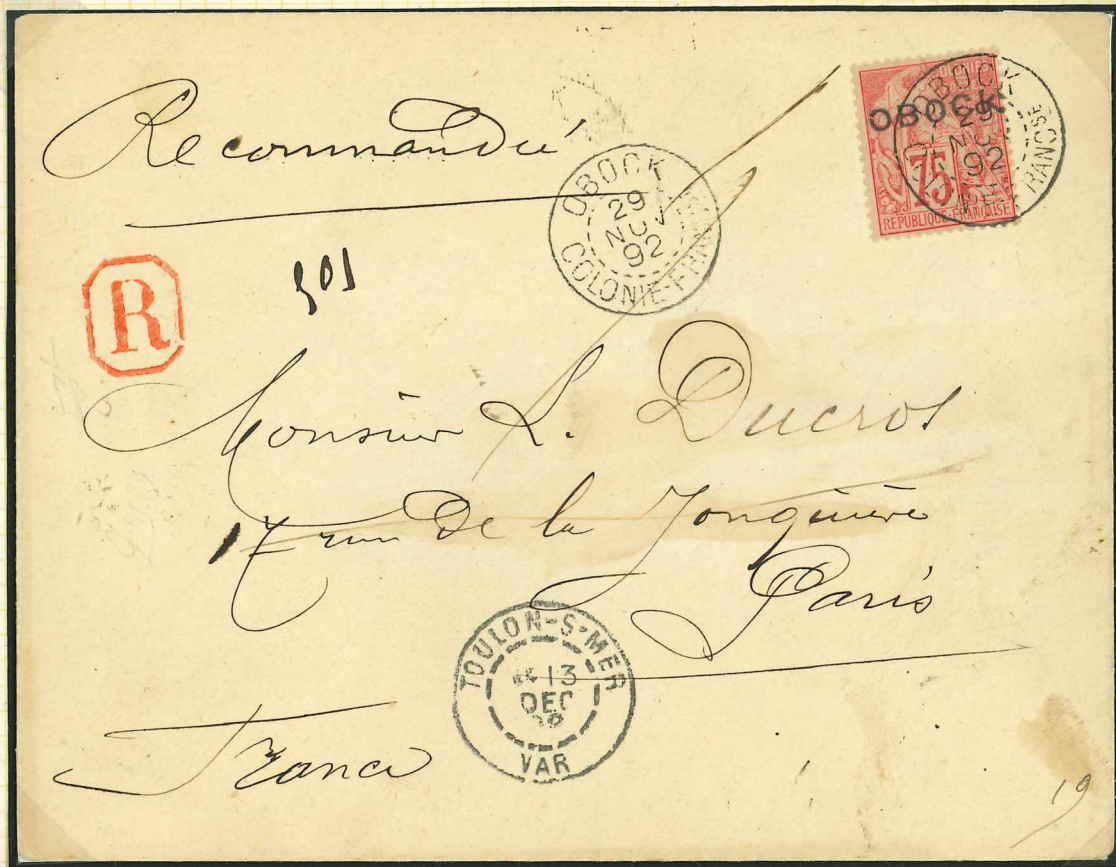 Recommandée
OBOCK
29
NOV
92
COLONIE-FRANÇSE
OBOCK
75
RÉPUBLIQUE FRANÇAISE
OBOCK
29
NOV
92
COLONIE FRANÇSE
R
501
Monsieur L. Ducros
17 rue de la Jonquière
Paris
TOULON-S-MER
13
DEC
92
VAR
France
19